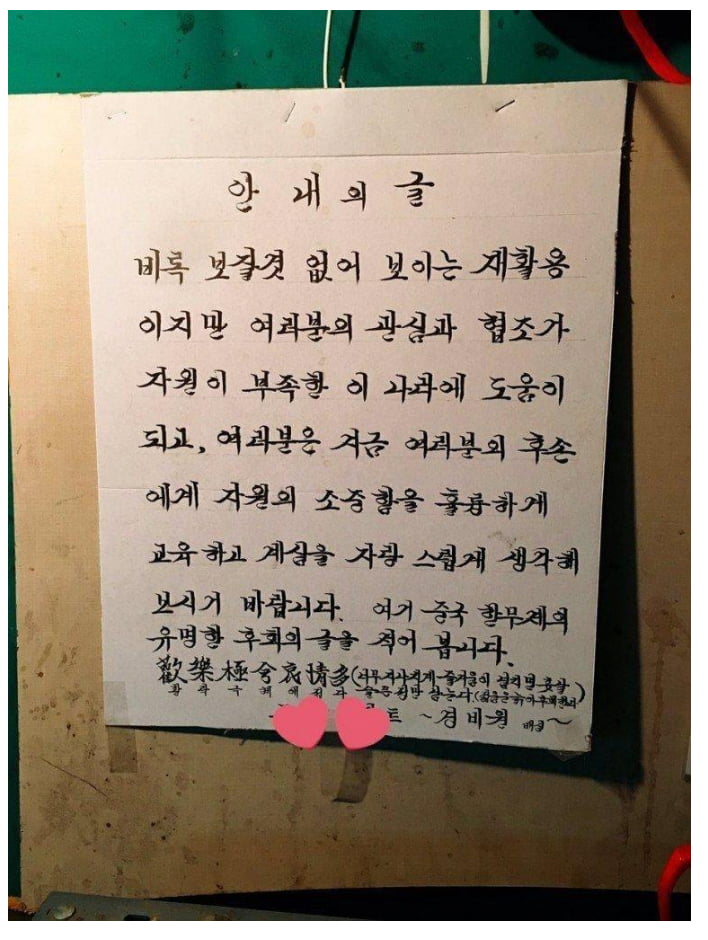 안내의 글
비록 보잘것 없어 보이는 재활용
이지만 여러분의 관심과 협조가
자원이 부족한 이 나라에 도움이
되고, 여러분은 지금 여러분의 후손
에게 자원의 소중함을 훌륭하게
교육하고 계심을 자랑스럽게 생각해
보시기 바랍니다. 여기 중국 한무제의
유명한 후회의 글을 적어 봅니다.
歡樂極兮哀情多(너무 지나치게 즐거움이 넘치면 옷살
환락극혜애정다 슬픈 정만 남는다.
트 ~경비원 배상~